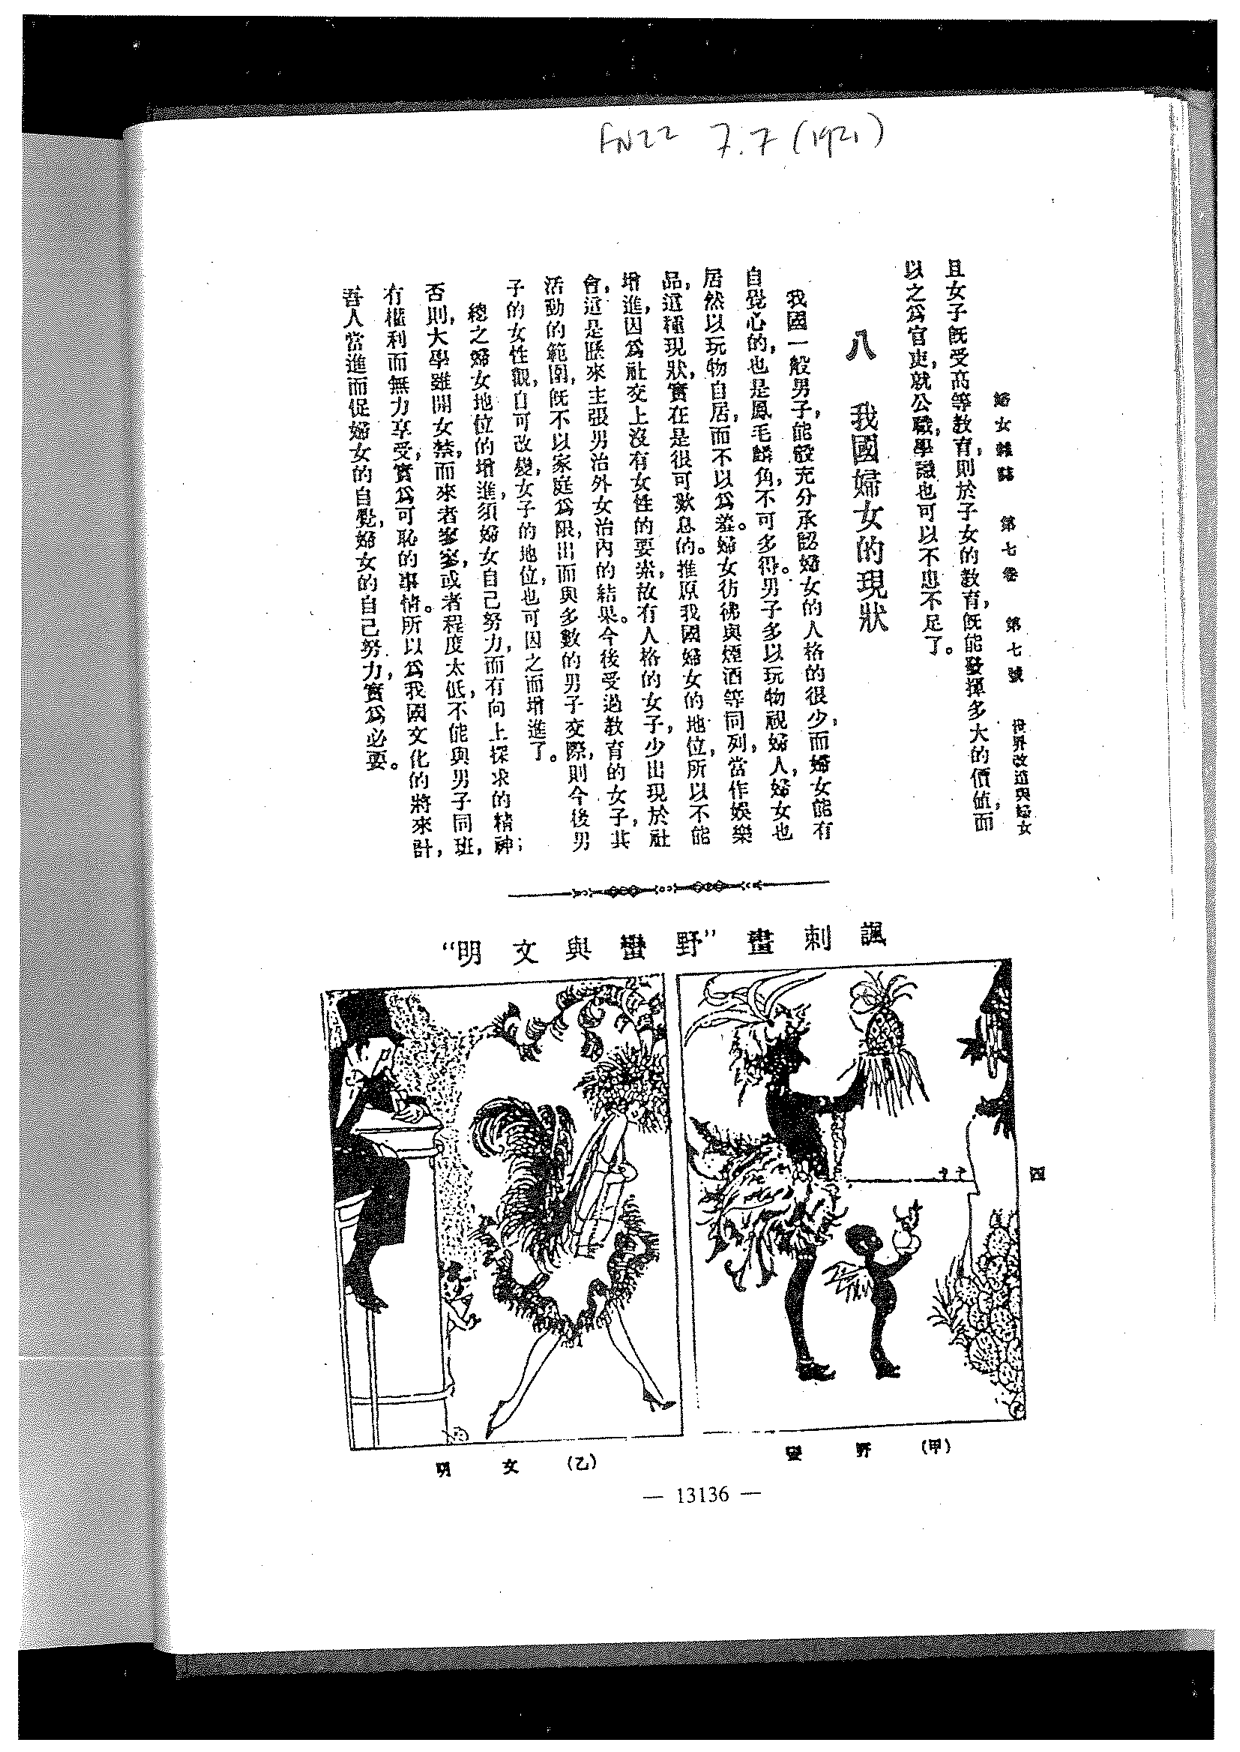 FN22 7.7 (1921)
婦女雜誌 第七卷 第七號 世界改造與婦女
四
且女子旣受高等敎育，則於子女的敎育，旣能發揮多大的價値，而
以之爲官吏，就公職，學識也可以不患不足了。
八 我國婦女的現狀
我國一般男子，能彀充分承認婦女的人格的很少，而婦女能有
自覺心的，也是鳳毛麟角，不可多得。男子多以玩物視婦人，婦女也
居然以玩物自居，而不以爲羞。婦女彷彿與煙酒等同列，當作娛樂
品，這種現狀，實在是很可歎息的。推原我國婦女的地位，所以不能
增進，因爲社交上沒有女性的要素，故有人格的女子，少出現於社
會，這是歷來主張男治外女治內的結果。今後受過敎育的女子，其
活動的範圍，旣不以家庭爲限，出而與多數的男子交際，則今後男
子的女性觀，自可改變，女子的地位，也可因之而增進了。
總之婦女地位的增進，須婦女自己努力，而有向上探求的精神；
否則，大學雖開女禁，而來者寥寥，或者程度太低，不能與男子同班，
有權利而無力享受，實爲可恥的事情。所以爲我國文化的將來計，
吾人當進而促婦女的自覺，婦女的自己努力，實爲必要。
諷刺畫"野蠻與文明"
(甲) 野蠻
(乙) 文明
— 13136 —